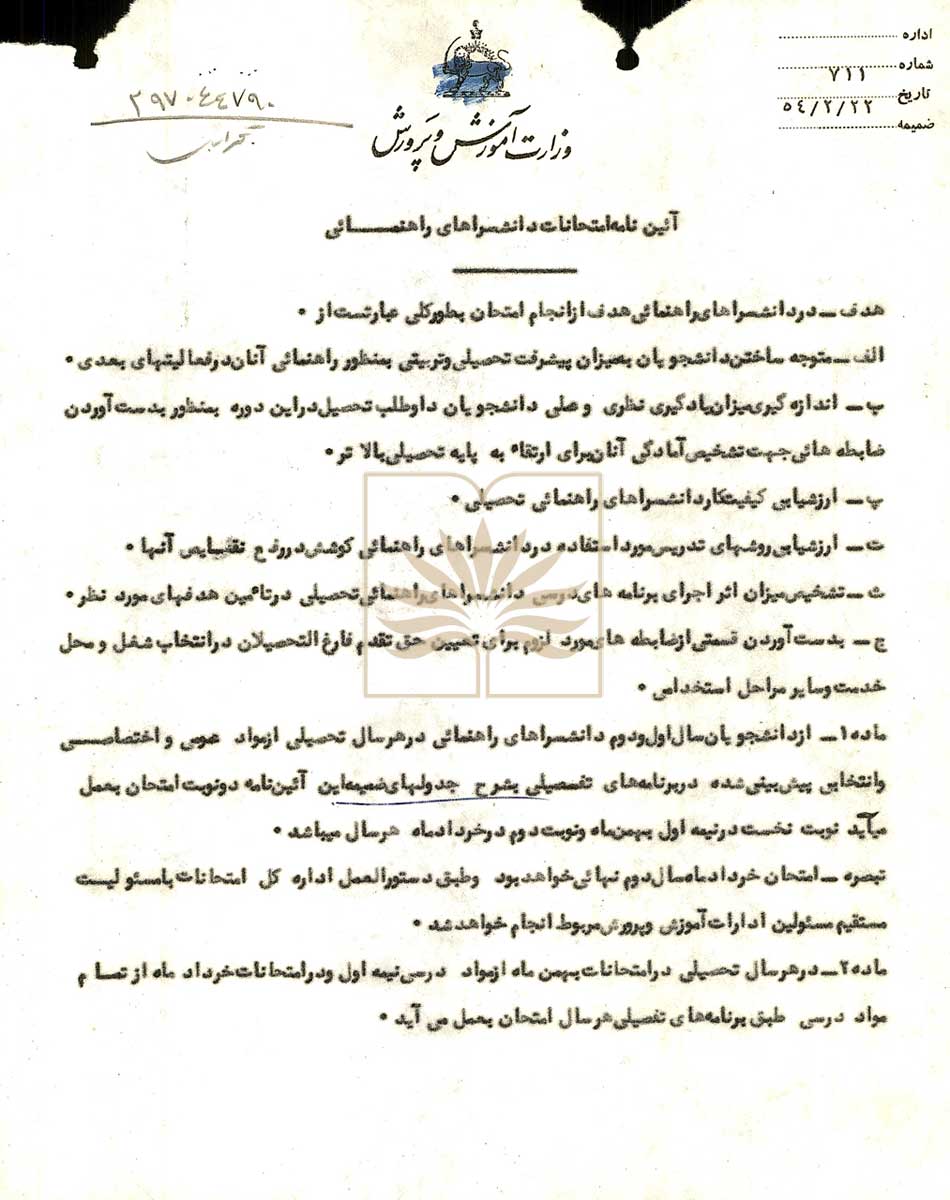 اداره
شماره ۷۱۱
تاریخ ۵٤/۲/۲۲
ضمیمه
۲۹۷۰٤٤۷۹۰
وزارت آموزش و پرورش
آئین نامه امتحانات دانشسراهای راهنمـــــائی
هدف ــ در دانشسراهای راهنمائی هدف از انجام امتحان بطور کلی عبارتست از •
الف ــ متوجه ساختن دانشجویان به میزان پیشرفت تحصیلی و تربیتی بمنظور راهنمائی آنان در فعالیتهای بعدی •
پ ــ اندازه گیری میزان یادگیری نظری و عملی دانشجویان داوطلب تحصیل در این دوره بمنظور بدست آوردن
ضابطه هائی جهت تشخیص آمادگی آنان برای ارتقاء به پایه تحصیلی بالا تر •
پ ــ ارزشیابی کیفیت کار دانشسراهای راهنمائی تحصیلی •
ت ــ ارزشیابی روشهای تدریس مورد استفاده در دانشسراهای راهنمائی کوشش در رفع نقایص آنها •
ث ــ تشخیص میزان اثر اجرای برنامه های درسی دانشسراهای راهنمائی تحصیلی در تأمین هدفهای مورد نظر •
ج ــ بدست آوردن قسمتی از ضابطه های مورد لزوم برای تعیین حق تقدم فارغ التحصیلان در انتخاب شغل و محل
خدمت و سایر مراحل استخدامی •
ماده ۱ــ از دانشجویان سال اول و دوم دانشسراهای راهنمائی در هر سال تحصیلی از مواد عمومی و اختصاصـــی
و انتخابی پیش بینی شده در برنامه های تفصیلی بشرح جدولهای ضمیمه این آئین نامه دو نوبت امتحان بعمل
میآید نوبت نخست در نیمه اول بهمن ماه و نوبت دوم در خرداد ماه هر سال میباشد •
تبصره ــ امتحان خرداد ماه سال دوم نهائی خواهد بود وطبق دستورالعمل اداره کل امتحانات با مسئولیت
مستقیم مسئولین ادارات آموزش و پرورش مربوط انجام خواهد شد •
ماده ۲ــ در هر سال تحصیلی در امتحانات بهمن ماه از مواد درسی نیمه اول و در امتحانات خرداد ماه از تمـام
مواد درسی طبق برنامه های تفصیلی هر سال امتحان بعمل می آید •